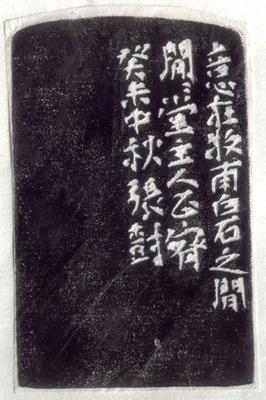 意在牧甫白石之間
間〻堂主人正
癸未中秋張樹